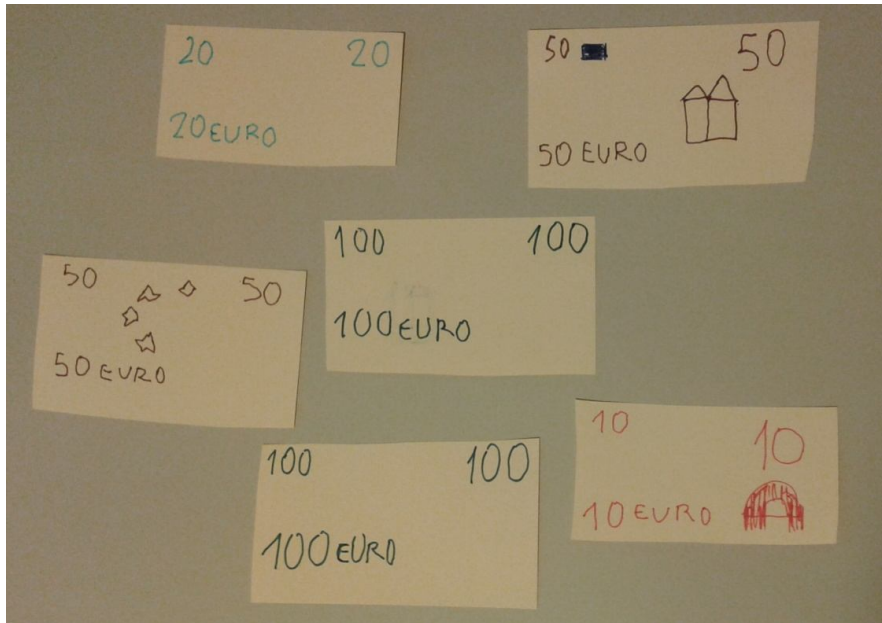 20 20
20 EURO
50 50
50 EURO
100 100
100 EURO
50 50
50 EURO
10 10
10 EURO
100 100
100 EURO